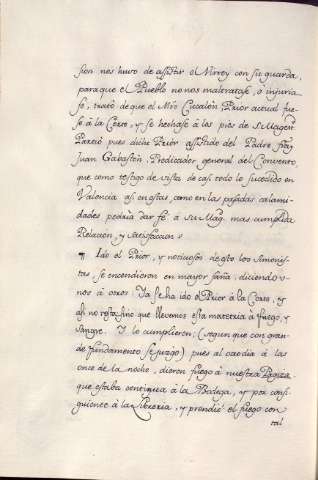 sion nos huvo de assistir el Virrey con su guarda,
paraque el Pueblo no nos maltratase, ò injuria-
se, trató de que el Mro Cucalòn, Prior actual fue-
se á la Corte, y se hechase à los pies de su Magd
Partiò pues dicho Prior assistido del Padre fray
Juan Gabastòn, Predicador general del Convento,
que como testigo de vista de casi todo lo sucedido en
Valencia asi en estas, como en las passadas calami-
dades podria dar fé à su Mag. mas cumplida
Relacion, y satisfaccion
¶ Ido el Prior, y noticiosos de esto los Simonis-
tas, se encendieron en mayor saña, diciendo u-
nos à otros: Ya se ha ido el Prior à la Corte, y
asi no resta sino que llevemos esta materia à fuego, y
sangre. Y lo cumplieron: (segun que con gran-
de fundamento se juzgó) pues al otro dia à las
once de la noche, dieron fuego à nuestra
que estaba contigua à la Bodega, y por consi-
guiente à la Libreria, y prendiò el fuego con
tal